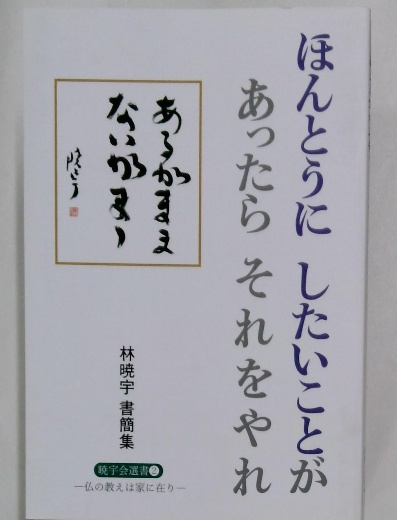 ほんとうに したいことが
あったら それをやれ
あるがまま
ないがまま
暁宇
林暁宇 書簡集
暁宇会選書❷
―仏の教えは家に在り―